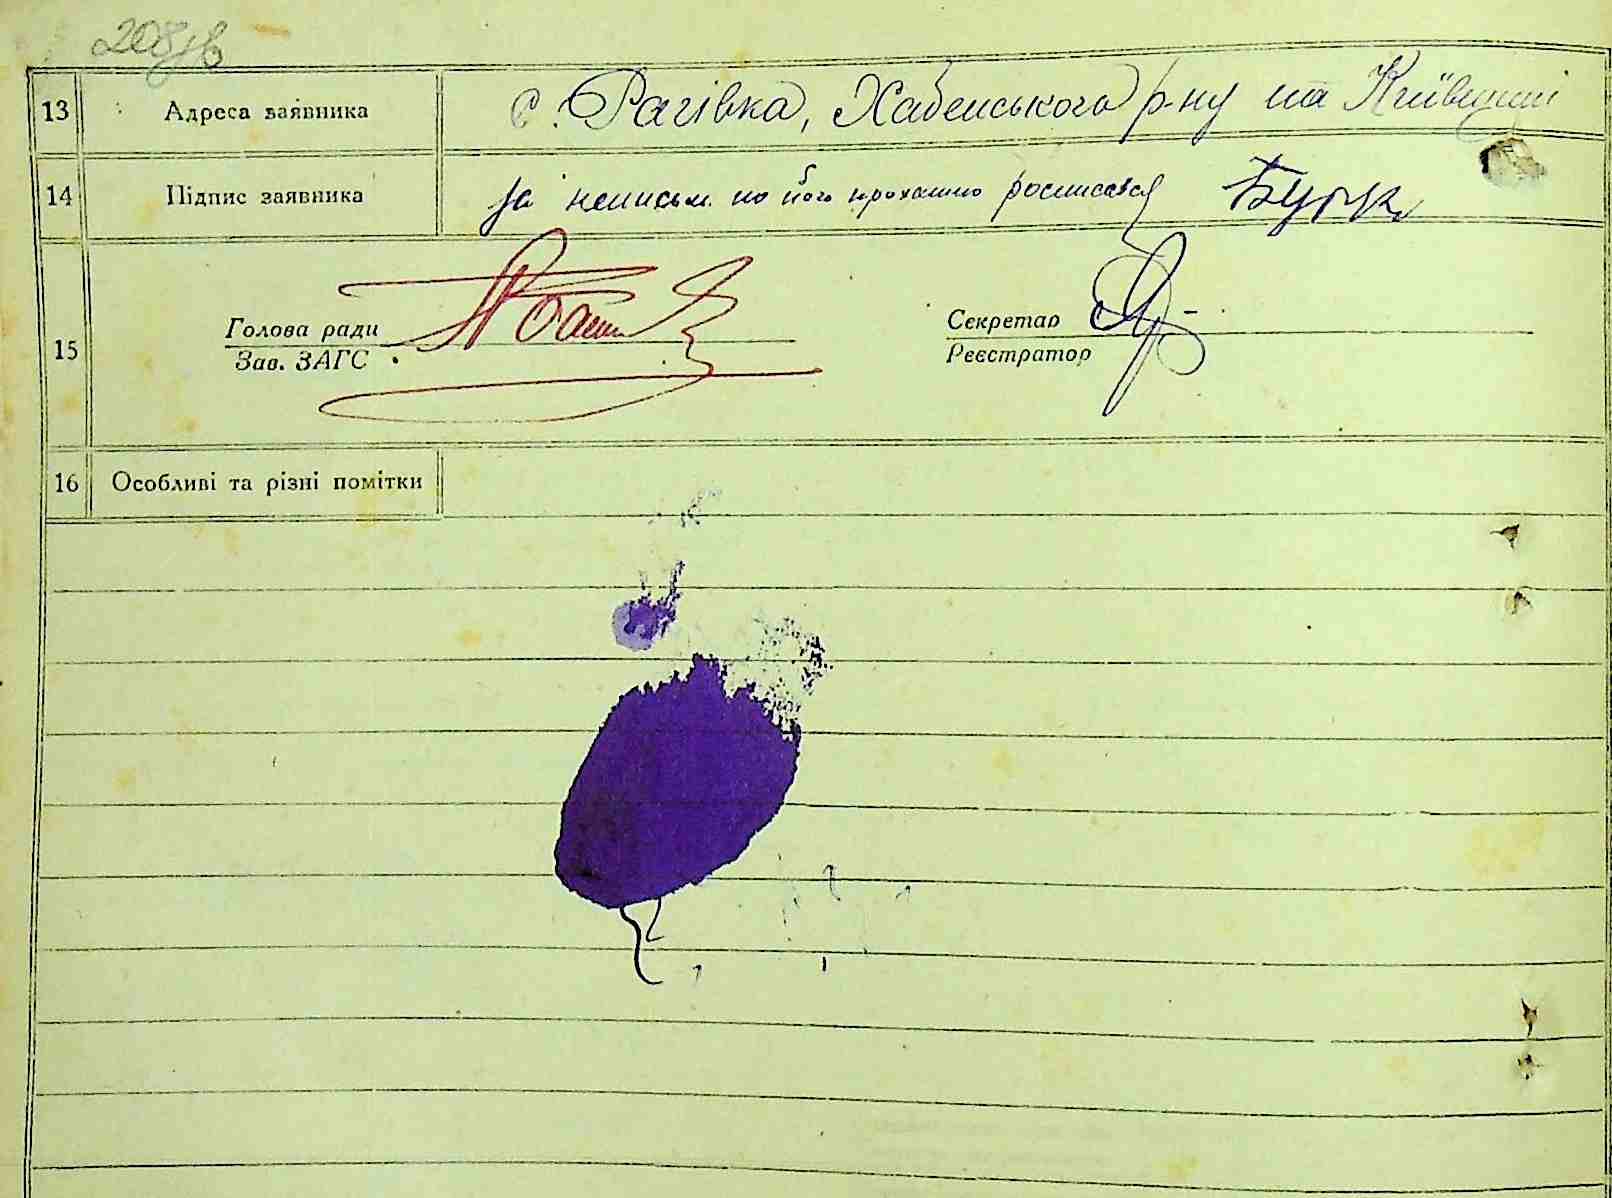 208 зв
13 Адреса заявника с. Рагівка, Хабенського р-ну на Київщині
14 Підпис заявника За неписьм. по його проханню росписався
15 Голова ради Секретар
Зав. ЗАГС Реєстратор
16 Особливі та різні помітки